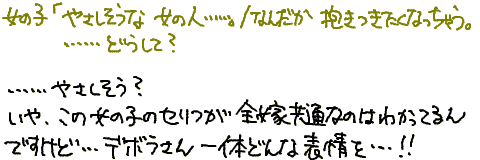 女の子「やさしそうな 女の人……。/なんだか 抱きつきたくなっちゃう。
……どうして？
……やさしそう？
いや、この女の子のセリフが 全嫁共通なのはわかってるん
ですけど… デボラさん 一体どんな表情を…!!